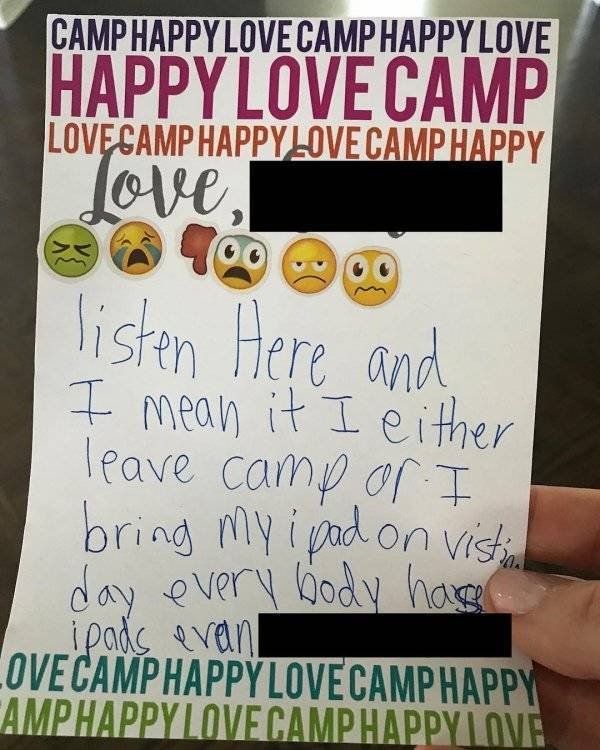 CAMP HAPPY LOVE CAMP HAPPY LOVE
HAPPY LOVE CAMP
LOVE CAMP HAPPY LOVE CAMP HAPPY
Love,
listen Here and
I mean it I either
leave camp or I
bring my ipad on
day every body has
ipads evan
OVE CAMP HAPPY LOVE CAMP HAPPY
AMP HAPPY LOVE CAMP HAPPY LOVE